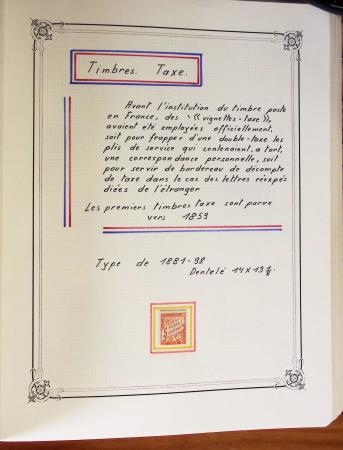 Timbres. Taxe.
Avant l'institution du timbre poste
en France, des "«vignettes-taxe»,
avaient été employées officiellement,
soit pour frapper d'une double-taxe les
plis de service qui contenaient, a tort,
une correspondance personnelle, soit
pour servir de bordereau de décompte
de taxe dans le cas des lettres réexpé
diées de l'étranger
Les premiers timbres taxe sont parue
vers 1859
Type de 1881-92
Dentelé 14 x 13 ½.